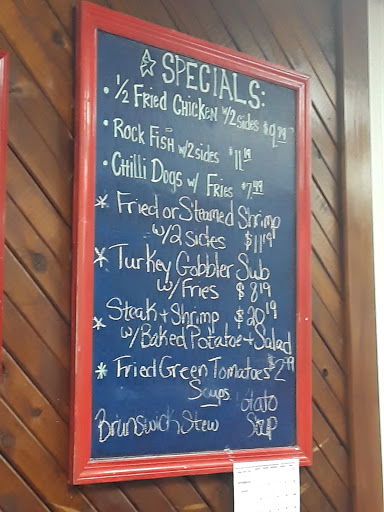 ☆ SPECIALS:
• 1/2 Fried Chicken w/2 sides $9.79
• Rock Fish w/2 sides $11.19
• Chilli Dogs w/ Fries $7.49
* Fried or Steamed Shrimp
w/2 sides $11.19
* Turkey Gobbler Sub
w/Fries $8.19
* Steak + Shrimp $20.19
w/Baked Potatoe + Salad
* Fried Green Tomatoes $2.99
Soups
Brunswick Stew